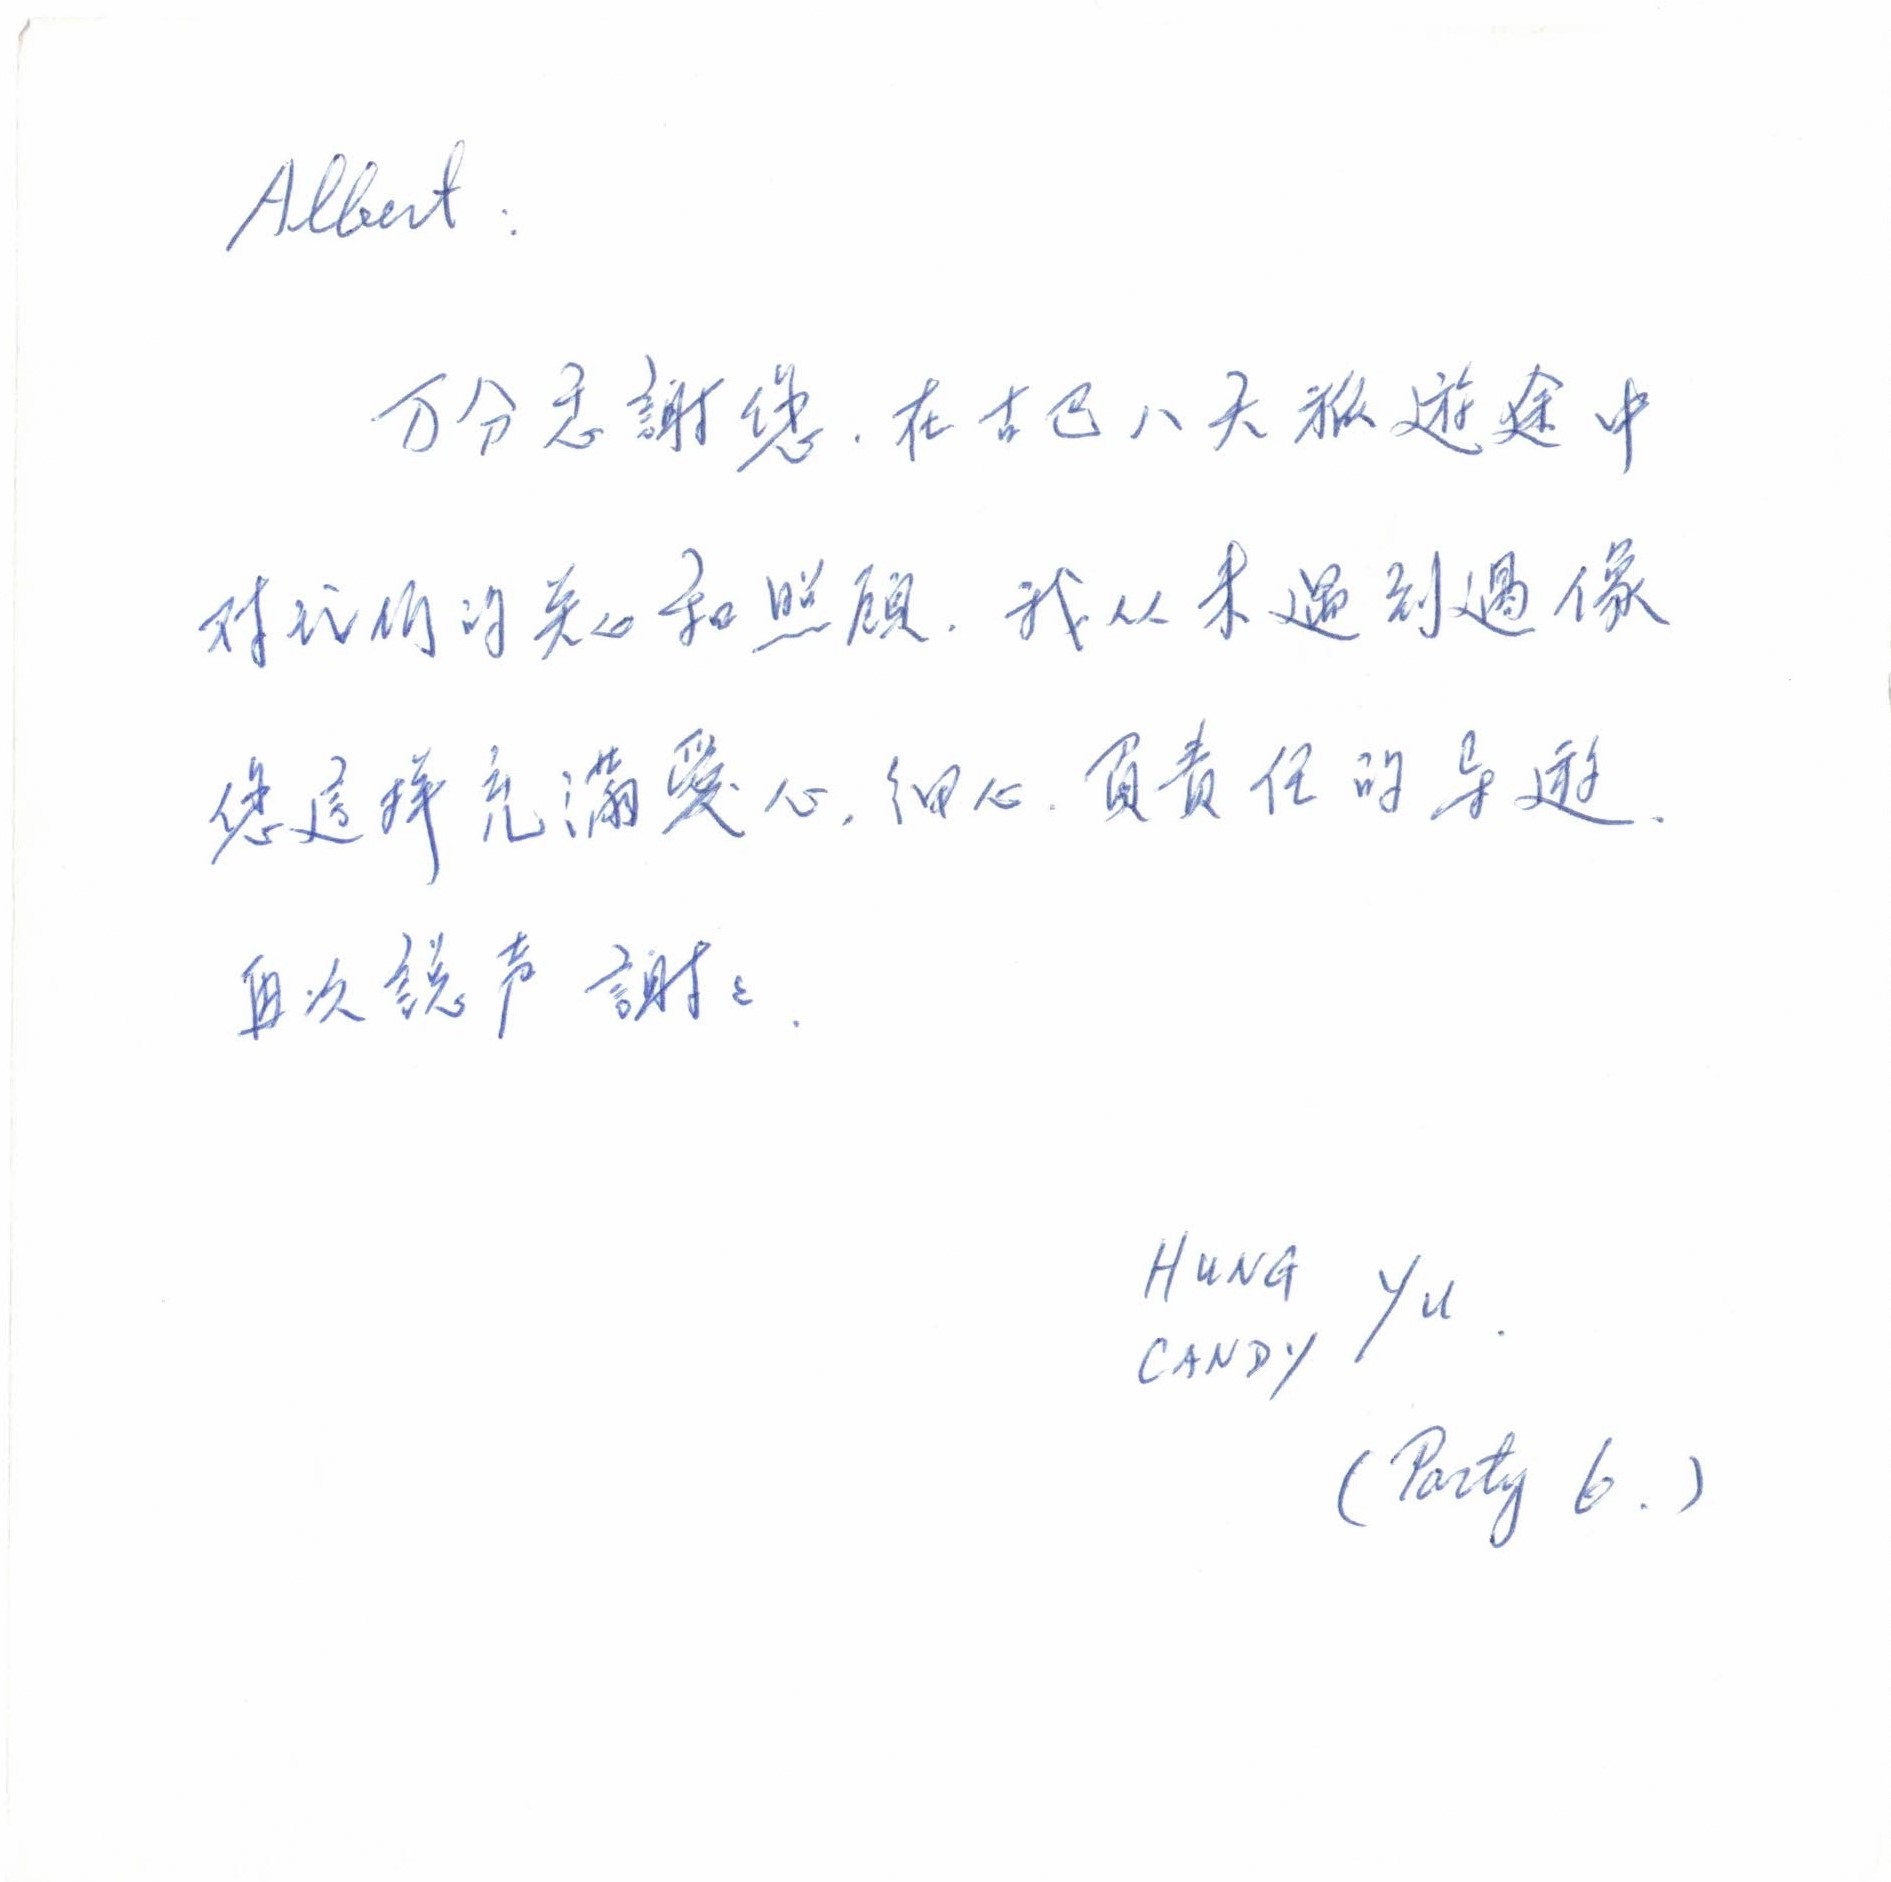 Albert :
万分感謝您. 在古巴八天旅遊途中
对我们的关心和照顾. 我从未遇到過像
您這样充滿愛心, 细心. 負責任的导遊.
再次說声 謝々.
HUNG YU.
CANDY
(Party 6.)